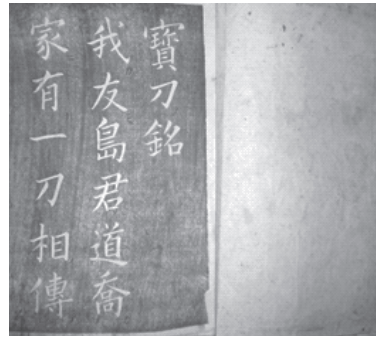 寳刀銘
我友島君道喬
家有一刀相傳